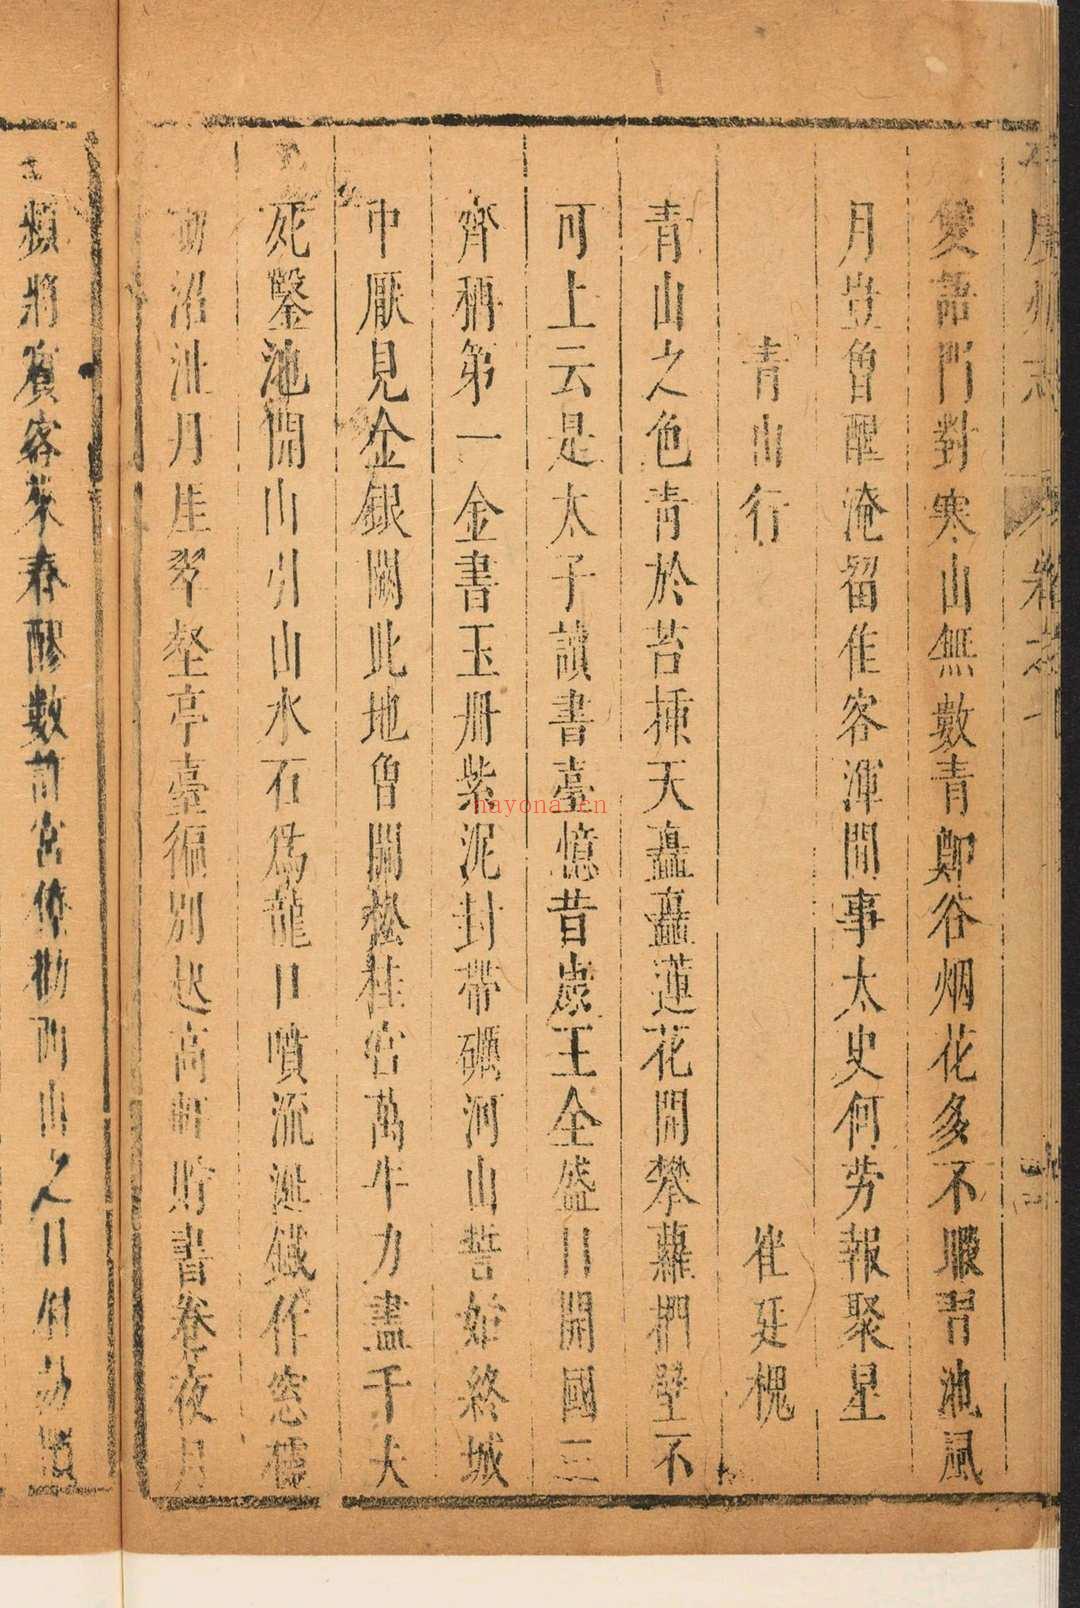 雙語門對寒山無數青鄭谷烟花多不暇習池風
月豈曾醒淹留隹客渾閒事太史何勞報聚星
青山行 崔廷槐
青山之色青於苔揷天矗矗蓮花開攀蘿捫壁不
可上云是太子讀書臺憶昔衡王全盛日開國三
齊稱第一金書玉冊紫泥封帶礪河山誓始終城
中厭見金銀闕此地曾開松桂宮萬牛力盡千夫
死鑿池開山引山水石爲龍口噴流澌鐵作窓櫺
沼沚月 翠 亭臺徧别起高 貯書卷夜月
頻將賓客來春醪數 宮僚 西山之 日
hayona.cn